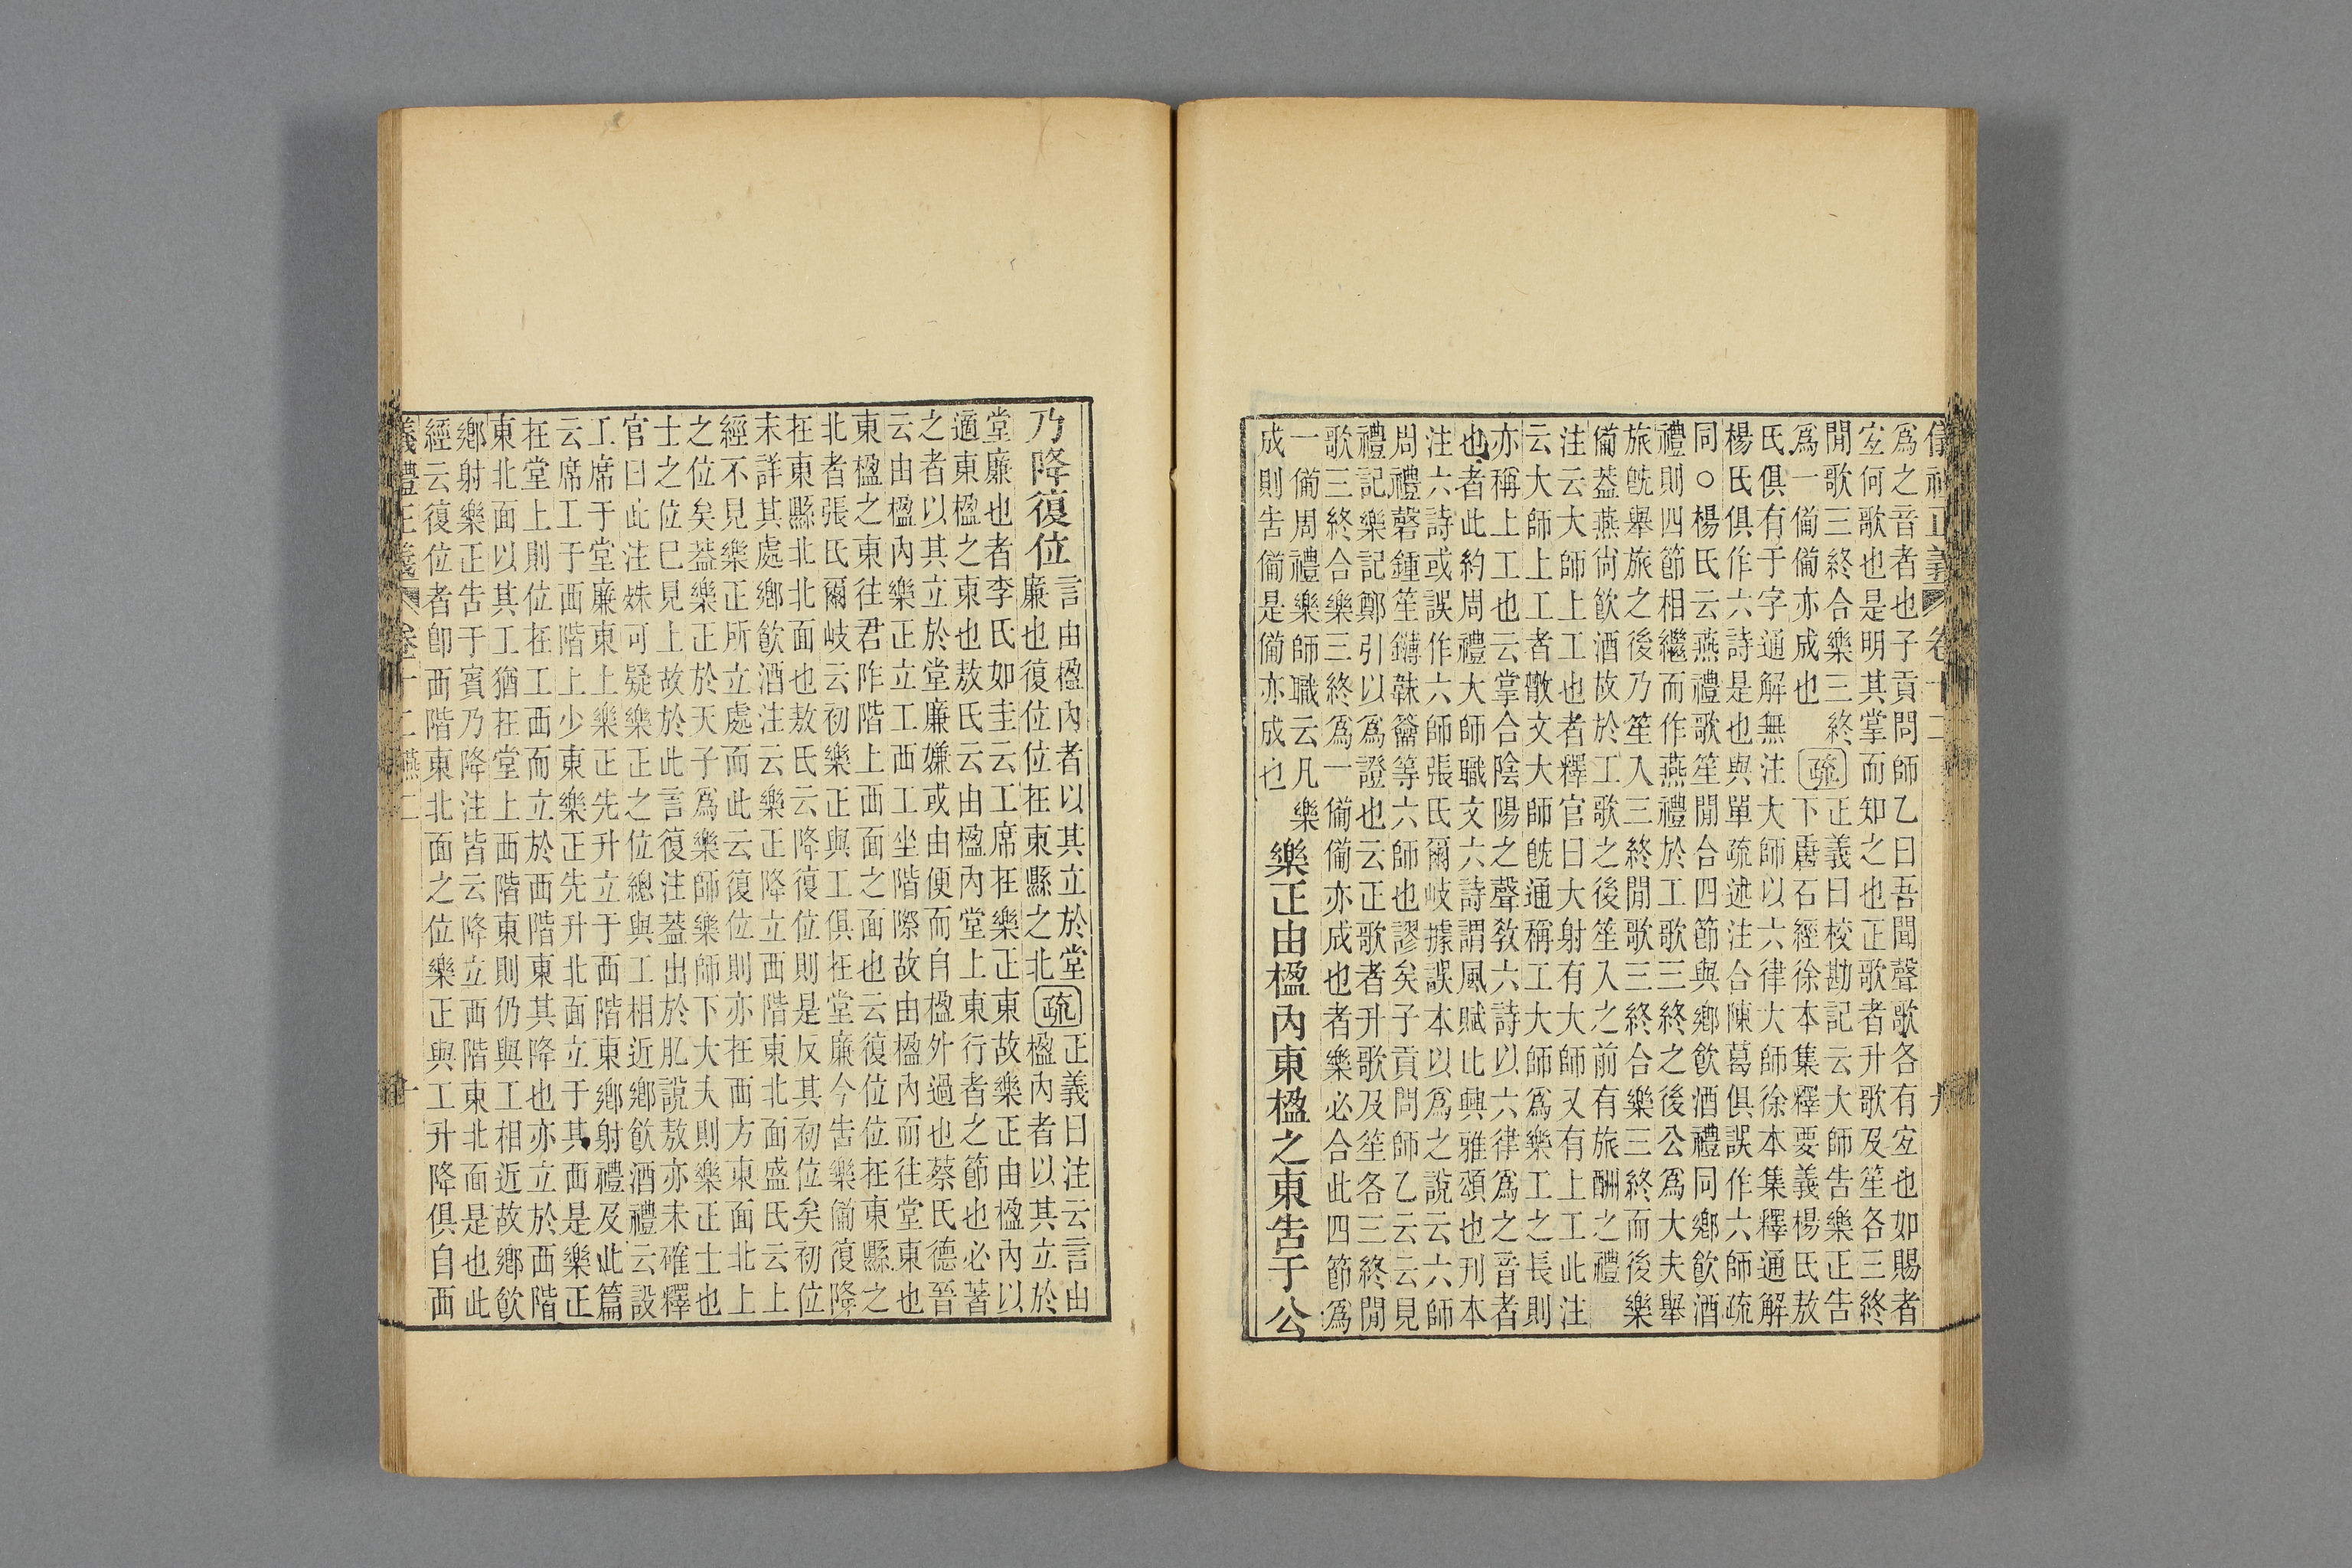 儀禮正義 卷十二 九
爲之音者也子貢問師乙曰吾聞聲歌各有宐也如賜者
宐何歌也是明其掌而知之也正歌者升歌及笙各三終
閒歌三終合樂三終
爲一備備亦成也
疏
正義曰校勘記云大師告樂正告
下唐石經徐本集釋要義楊氏敖
氏俱有于字通解無注大師以六律大師徐本集釋通解
楊氏俱作六詩是也與單疏述注合陳葛俱誤作六師疏
同○楊氏云燕禮歌笙閒合四節與鄉飲酒禮同鄉飲酒
禮則四節相繼而作燕禮於工歌三終之後公爲大夫舉
旅旣舉旅之後乃笙入三終閒歌三終合樂三終而後樂
備葢燕尙飲酒故於工歌之後笙入之前有旅酬之禮
注云大師上工也者釋官曰大射有大師又有上工此注
云大師上工者散文大師旣通稱工大師爲樂工之長則
亦稱上工也云掌合陰陽之聲敎六詩以六律爲之音者
也者此約周禮大師職文六詩謂風賦比興雅頌也刊本
注六詩或誤作六師張氏爾岐據誤本以爲之說云六師
周禮磬鍾笙鏄韎籥等六師也謬矣子貢問師乙云云見
禮記樂記鄭引以爲證也云正歌者升歌及笙各三終閒
歌三終合樂三終爲一備備亦成也者樂必合此四節爲
一備周禮樂師職云凡樂
成則告備是備亦成也
樂正由楹內東楹之東告于公
乃降復位
言由楹內者以其立於堂
廉也復位位在東縣之北
疏
正義曰注云言由
楹內者以其立於
堂廉也者李氏如圭云工席在樂正東故樂正由楹內以
適東楹之東也敖氏云由楹內堂上東行者之節也必著
之者以其立於堂廉嫌或由便而自楹外過也蔡氏德晉
云由楹內樂正立工西工坐階際故由楹內而往堂東也
東楹之東往君阼階上西面之面也云復位位在東縣之
北者張氏爾岐云初樂正與工俱在堂廉今告樂備復降
在東縣北北面也敖氏云降復位則是反其初位矣初位
未詳其處鄉飲酒注云樂正降立西階東北面盛氏云上
經不見樂正所立處而此云復位則亦在西方東面北上
之位矣葢樂正於天子爲樂師樂師下大夫則樂正士也
士之位已見上故於此言復注葢出於肊說敖亦未確釋
官曰此注殊可疑樂正之位總與工相近鄉飲酒禮云設
工席于堂廉東上樂正先升立于西階東鄉射禮及此篇
云席工于西階上少東樂正先升北面立于其西是樂正
在堂上則位在工西而立於西階東其降也亦立於西階
東北面以其工猶在堂上西階東則仍與工相近故鄉飲
鄉射樂正告于賓乃降注皆云降立西階東北面是也此
經云復位者卽西階東北面之位樂正與工升降俱自西
儀禮正義 卷十二 燕二 十